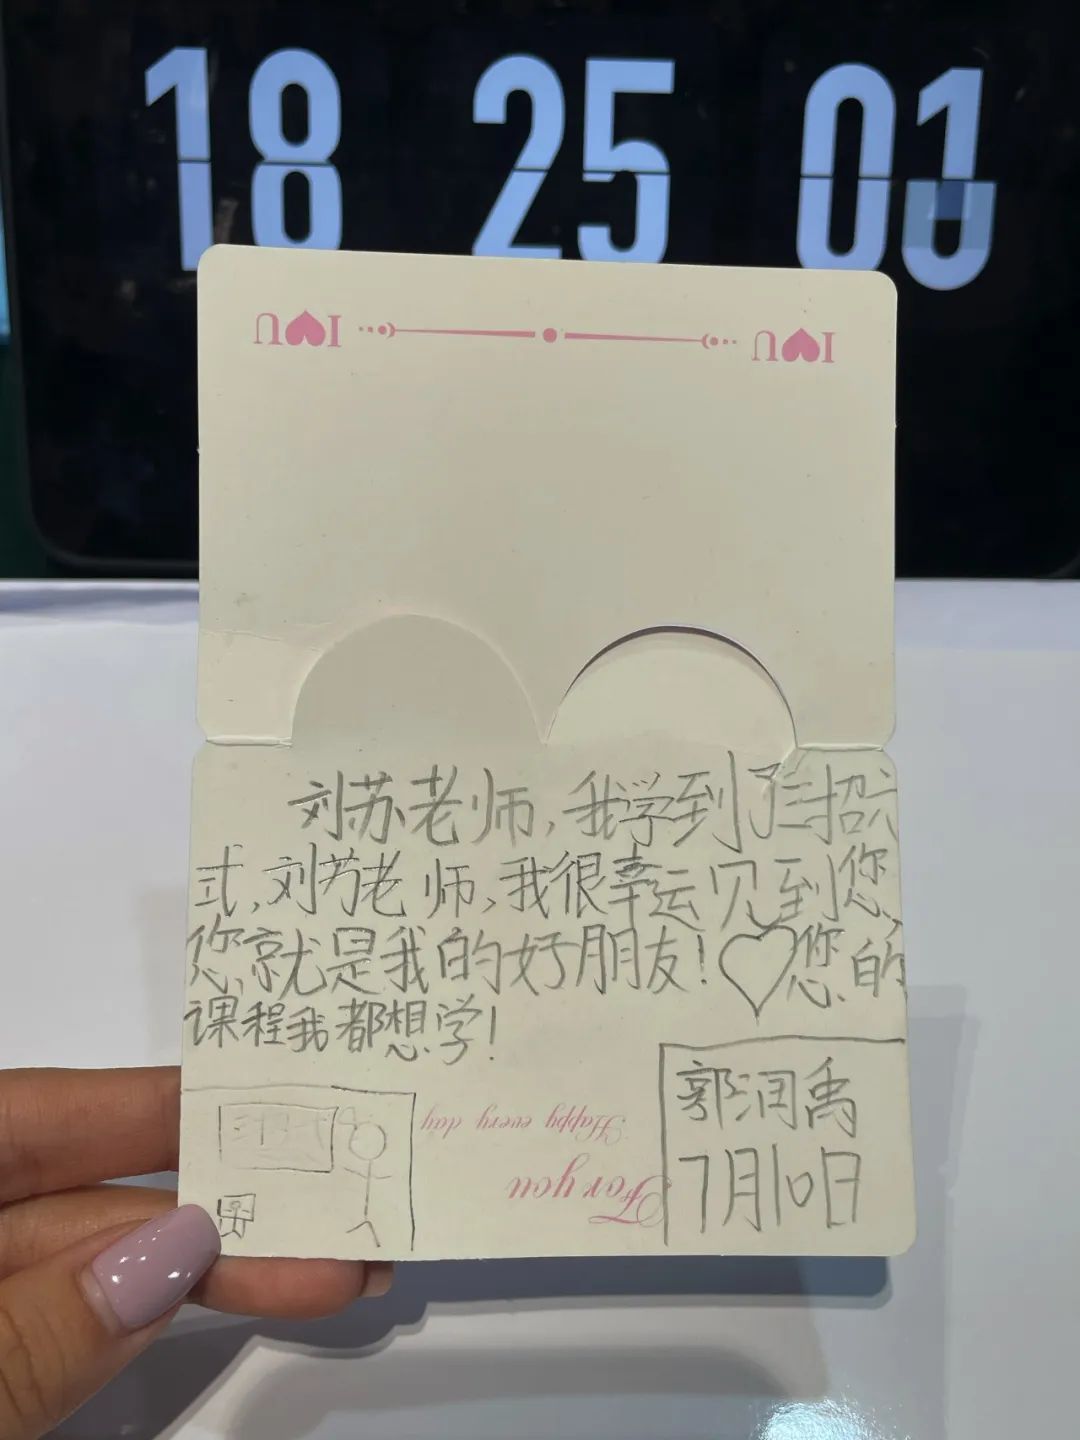 18 25 01
I♥U I♥U
刘苏老师,我学到了三招六
式,刘苏老师,我很幸运见到您,
您就是我的好朋友!♡您的
课程我都想学!
Happy every day
For you
郭润禹
7月10日